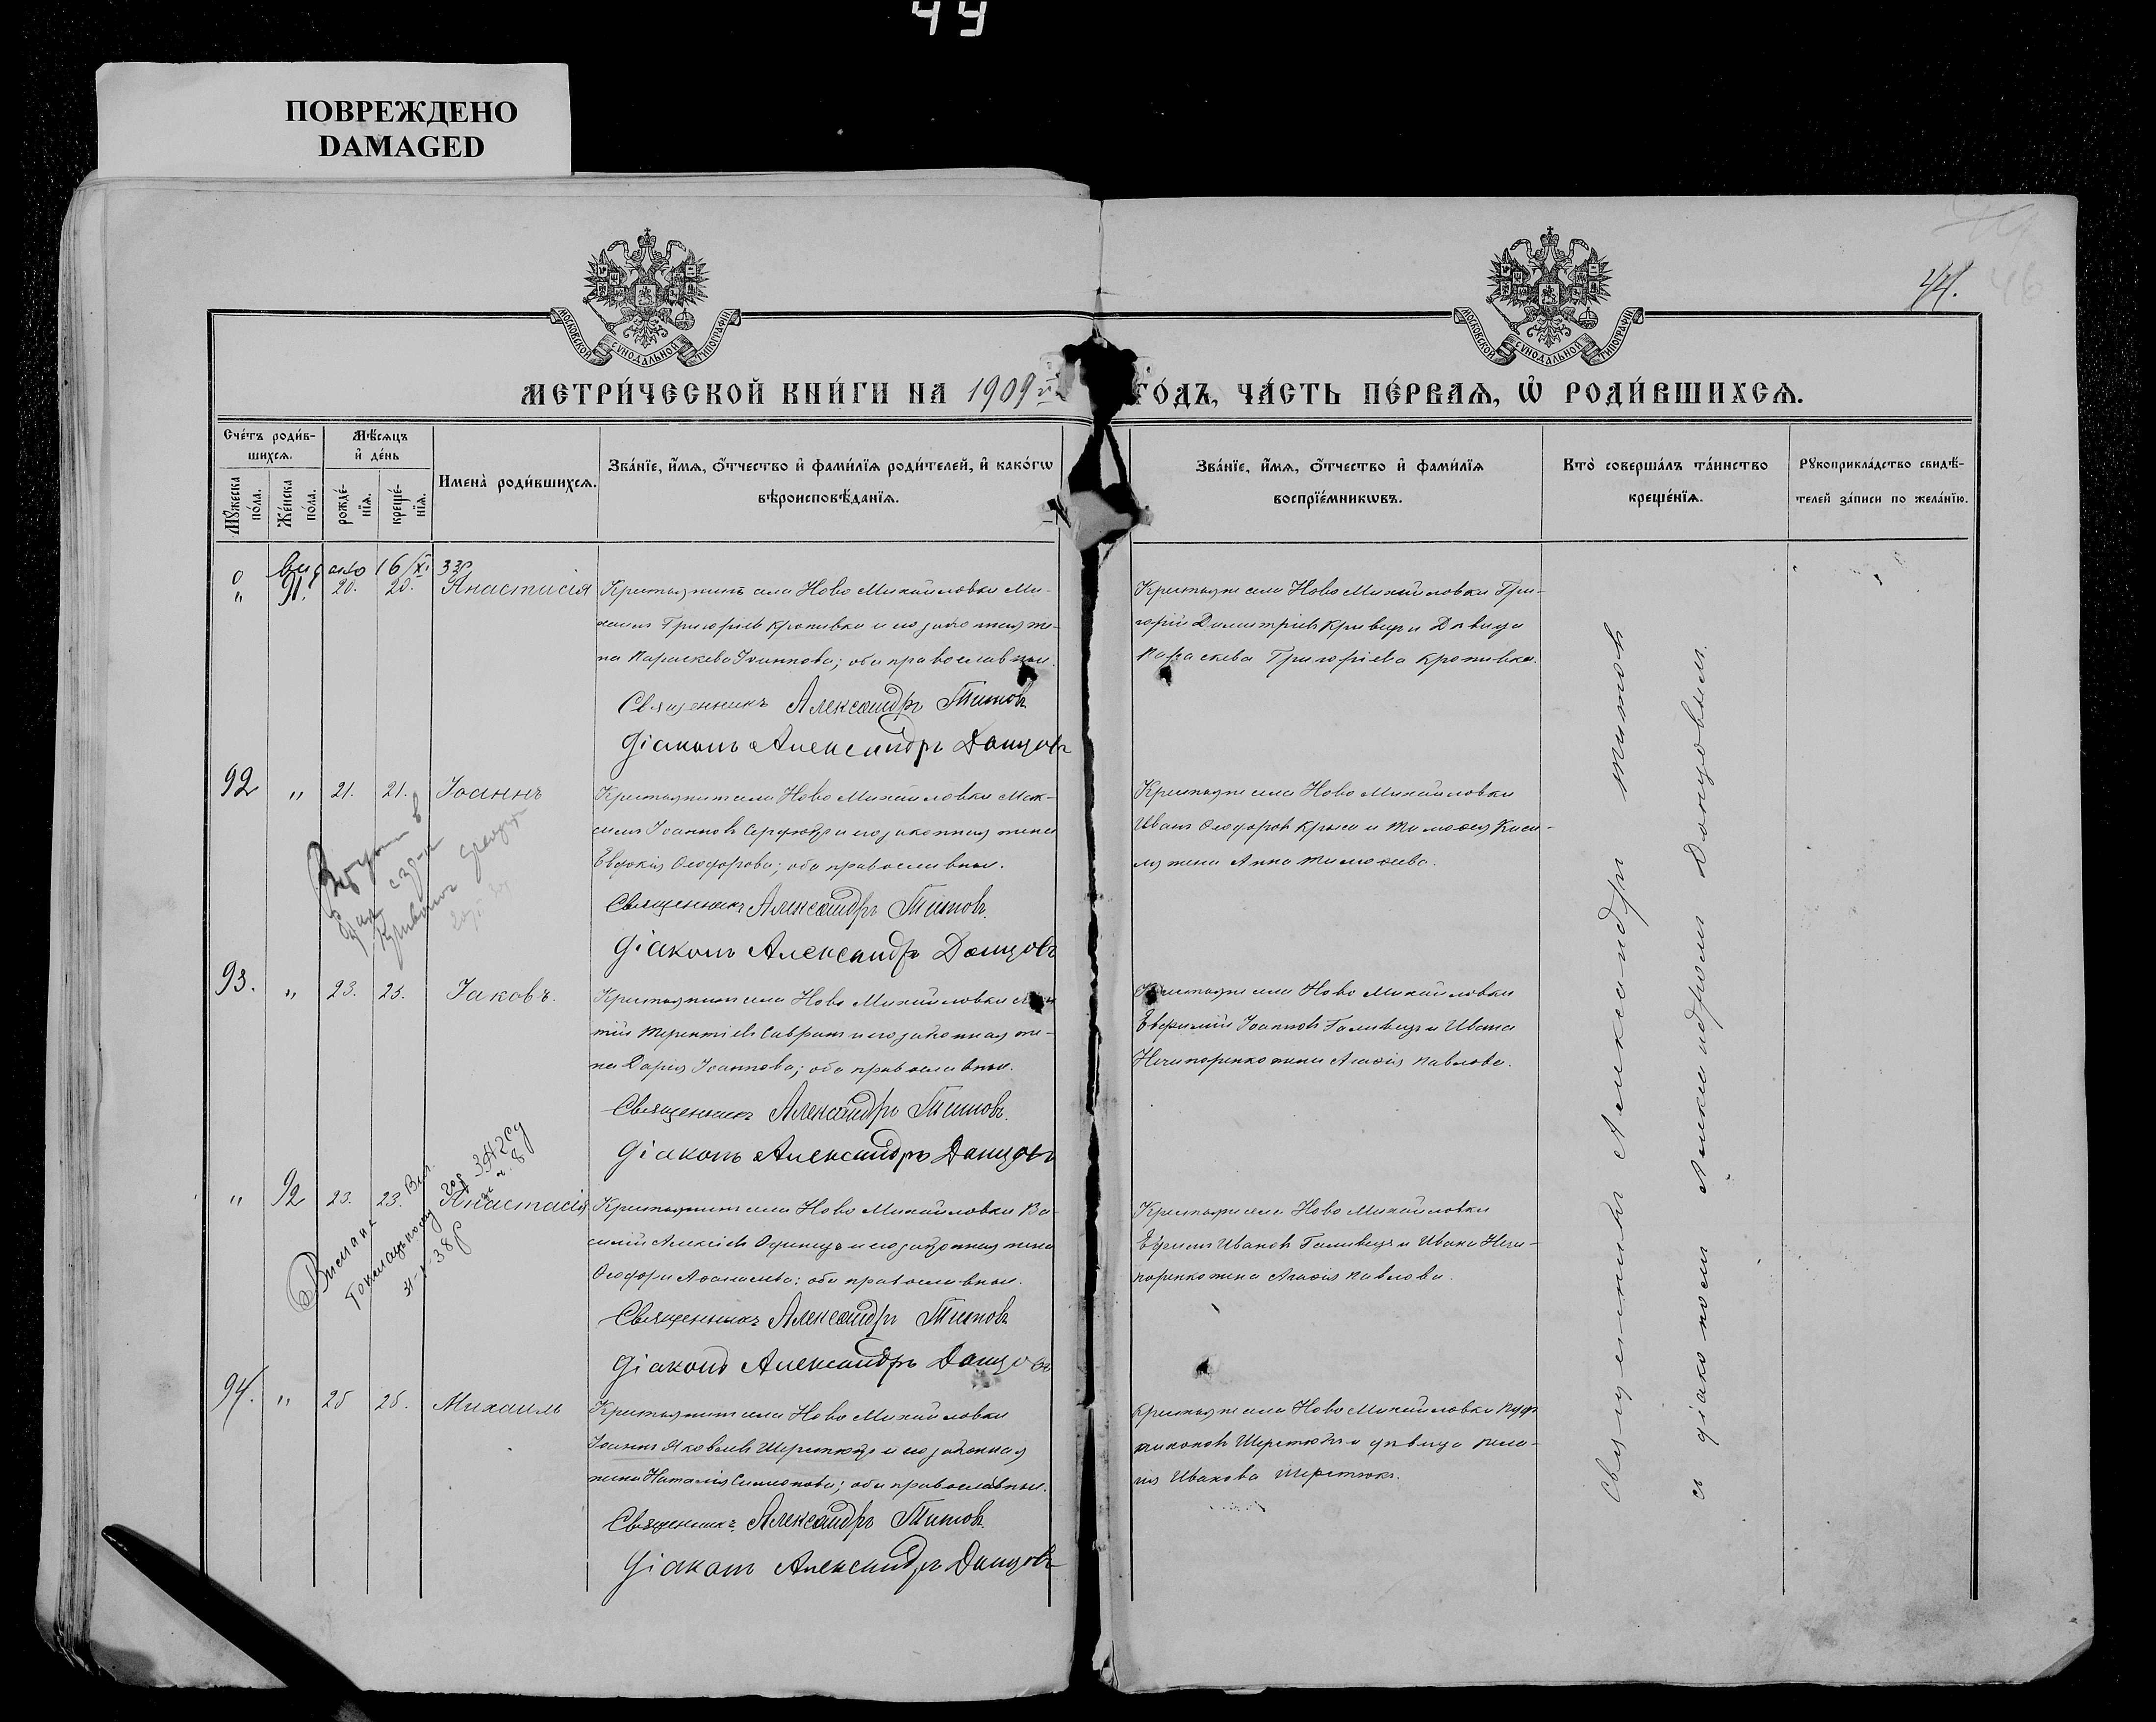 44
ПОВРЕЖДЕНО
DAMAGED
44.
46
МОСКОВСКОЙ СУНОДАЛЬНОЙ ТИПОГРАФІИ
МОСКОВСКОЙ СУНОДАЛЬНОЙ ТИПОГРАФІИ
МЕТРИ́ЧЕСКОЙ КНИ́ГИ НА 1909 ГО́ДЪ, ЧА́СТЬ ПЕ́РВАѦ, Ѡ҆ РОДИ́ВШИХСѦ.
Сче́тъ роди́в-
шихсѧ.
Мѣ́сѧцъ
и҆ де́нь
Мꙋ́жеска
по́ла.
Же́нска
по́ла.
рожде́-
нїѧ.
креще́-
нїѧ.
Имена̀ роди́вшихсѧ.
Зва́нїе, и҆́мѧ, ѻ҆́тчество и҆ фами́лїѧ роди́телей, и҆ како́гѡ
вѣроисповѣ́данїѧ.
Зва́нїе, и҆́мѧ, ѻ҆́тчество и҆ фами́лїѧ
воспрїе́мникѡвъ.
Кто̀ соверша́лъ та́инство
креще́нїѧ.
Рꙋкоприкла́дство свидѣ́-
телей за́писи по жела́нїю.
16/XI 33р
" 91. 20. 20. Анастасія
Крестьянинъ села Ново Михайловки Ми-
хаилъ Григоріевъ Кропивка и его законная же-
на Параскева Іоаннова; оба православные.
Священникъ Александръ Титовъ
Діаконъ Александръ Донцовъ
Крестьяне села Ново Михайловки Гри-
горій Димитріевъ Кривец и Девица
Параскева Григоріева Кропивка.
92 " 21. 21. Іоаннъ
Крестьянин села Ново Михайловки Мак-
симъ Іоанновъ Сердюкъ и его законная жена
Евдокія Ѳеодорова; оба православные.
Священникъ Александръ Титовъ.
Діаконъ Александръ Донцовъ
Крестьяне села Ново Михайловки
Иванъ Ѳеодоровъ Крыса и Тимоѳея Киси-
ля жена Анна Тимоѳеева.
93. " 23. 23. Іаковъ.
Крестьянин села Ново Михайловки
тій Терентіевъ Савранъ и его законная же-
на Дарія Іоаннова; оба православные.
Священникъ Александръ Титовъ.
Діаконъ Александръ Донцовъ
Крестьяне села Ново Михайловки
Евфимій Іоанновъ Галивецъ и Ивана
Нечипоренко жена Агаѳія Павлова.
" 92 23. 23. Анастасія
31-I-38р
Крестьянинъ села Ново Михайловки Ва-
силій Алексіевъ Одинецъ и его законная жена
Ѳеодора Аѳанасьева; оба православные.
Священникъ Александръ Титовъ
Діаконъ Александръ Донцовъ
Крестьяне села Ново Михайловки
Ефимъ Ивановъ Галивецъ и Ивана Нечи-
поренко жена Агаѳія Павлова.
94. " 25 25. Михаилъ
Крестьянин села Ново Михайловки
Іоаннъ Яковлевъ Шереметъ и его законная
жена Наталія Симеонова; оба православные.
Священникъ Александръ Титовъ.
Діаконъ Александръ Донцовъ
Крестьяне села Ново Михайловки
девица Пела-
гія Иванова
Священникъ Александръ Титовъ
съ діакономъ Александромъ Донцовымъ.